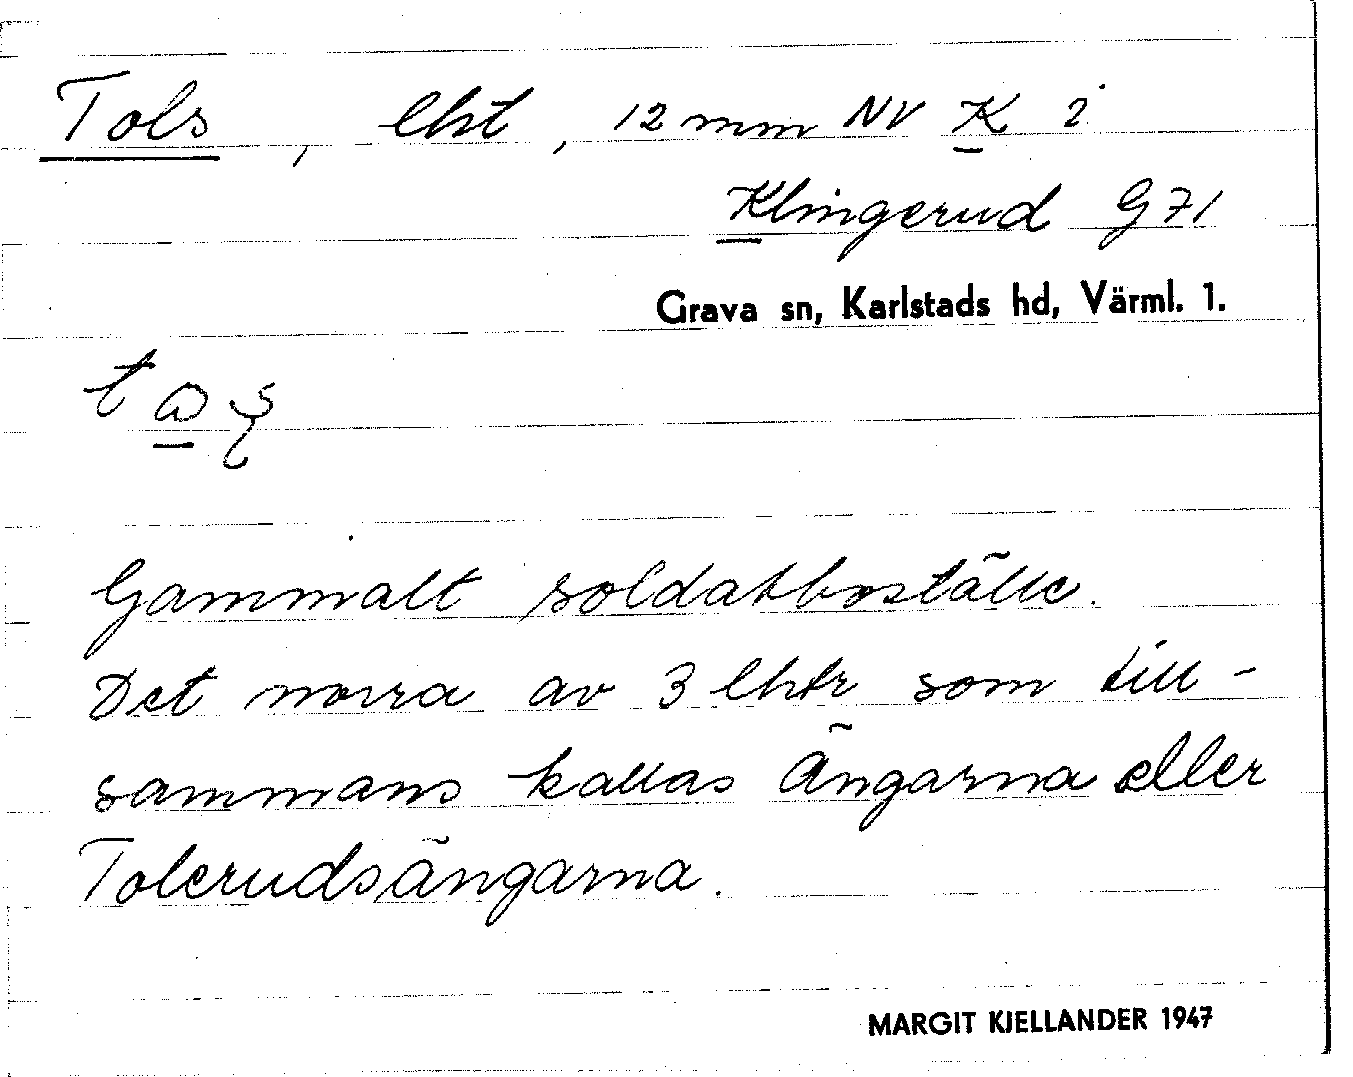 Tols, lht, 12 mm NV K i
Klingerud G 71
Grava sn, Karlstads hd, Värml. l.
Gammalt soldatboställe.
Det norra av 3 lhtr som till-
sammans kallas Ängarna eller
Tolerudsängarna.
MARGIT KJELLANDER 1947